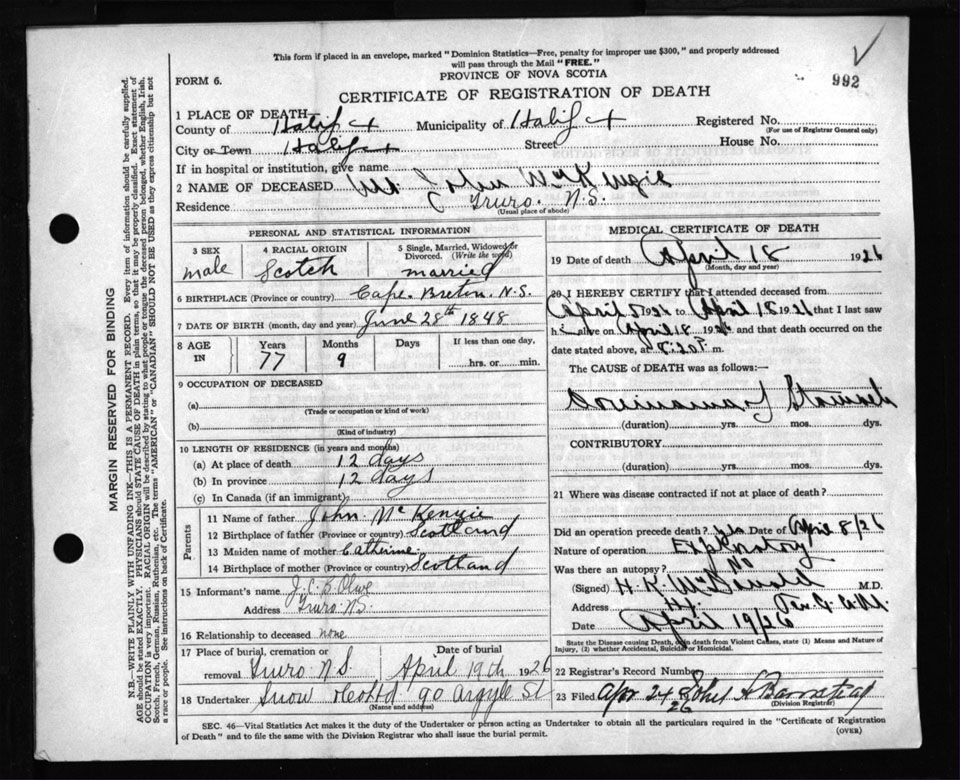 This form if placed in an envelope, marked "Dominion Statistics—Free, penalty for improper use $300," and properly addressed
will pass through the Mail "FREE."
992
FORM 6.
PROVINCE OF NOVA SCOTIA
CERTIFICATE OF REGISTRATION OF DEATH
1 PLACE OF DEATH
County of Halifax Municipality of Halifax Registered No.
(For use of Registrar General only)
City or Town Halifax Street House No.
If in hospital or institution, give name
2 NAME OF DECEASED Mr John McKenzie
Residence Truro. N.S.
(Usual place of abode)
PERSONAL AND STATISTICAL INFORMATION
3 SEX 4 RACIAL ORIGIN 5 Single, Married, Widowed or
Divorced. (Write the word)
male Scotch married
6 BIRTHPLACE (Province or country) Cape Breton. N.S.
7 DATE OF BIRTH (month, day and year) June 28th 1848
8 AGE IN Years Months Days If less than one day,
77 9 hrs. or min.
9 OCCUPATION OF DECEASED
(a)
(Trade or occupation or kind of work)
(b)
(Kind of industry)
10 LENGTH OF RESIDENCE (in years and months)
(a) At place of death 12 days
(b) In province 12 days
(c) In Canada (if an immigrant)
Parents
11 Name of father John McKenzie
12 Birthplace of father (Province or country) Scotland
13 Maiden name of mother Catherine
14 Birthplace of mother (Province or country) Scotland
15 Informant's name J. C. B. Olive
Address Truro N.S.
16 Relationship to deceased none
17 Place of burial, cremation or Date of burial
removal Truro N.S. April 19th 1926
18 Undertaker Snow & Co Ltd 90 Argyle St
(Name and address)
MEDICAL CERTIFICATE OF DEATH
19 Date of death April 18 1926
(Month, day and year)
20 I HEREBY CERTIFY that I attended deceased from
April 5 1926 to April 18 1926 that I last saw
h alive on April 18 1926 and that death occurred on
the date stated above, at 8:20 P. m.
The CAUSE of DEATH was as follows:—
Carcinoma of Stomach
(duration) yrs. mos. dys.
CONTRIBUTORY
(duration) yrs. mos. dys.
21 Where was disease contracted if not at place of death?
Did an operation precede death? yes Date of April 8/26
Nature of operation Exploratory
Was there an autopsy? No
(Signed) H. K. McDonald M.D.
Address Hx.
Date April 19/26
State the Disease causing Death, in death from Violent Causes, state (1) Means and Nature of
Injury, (2) whether Accidental, Suicidal or Homicidal.
22 Registrar's Record Number
23 Filed Apr 24 26
(Division Registrar)
SEC. 46—Vital Statistics Act makes it the duty of the Undertaker or person acting as Undertaker to obtain all the particulars required in the "Certificate of Registration
of Death" and to file the same with the Division Registrar who shall issue the burial permit. (OVER)
MARGIN RESERVED FOR BINDING
N.B.—WRITE PLAINLY WITH UNFADING INK—THIS IS A PERMANENT RECORD. Every item of information should be carefully supplied.
AGE should be stated EXACTLY. PHYSICIANS should STATE CAUSE OF DEATH in plain terms, so that it may be properly classified. Exact statement of
OCCUPATION is very important. RACIAL ORIGIN will be described by stating to what people or tongue the deceased person belonged, whether English, Irish,
Scotch, French, German, Russian, Ruthenian, etc. The terms "AMERICAN" or "CANADIAN" SHOULD NOT BE USED as they express citizenship but not
a race or people. See instructions on back of Certificate.